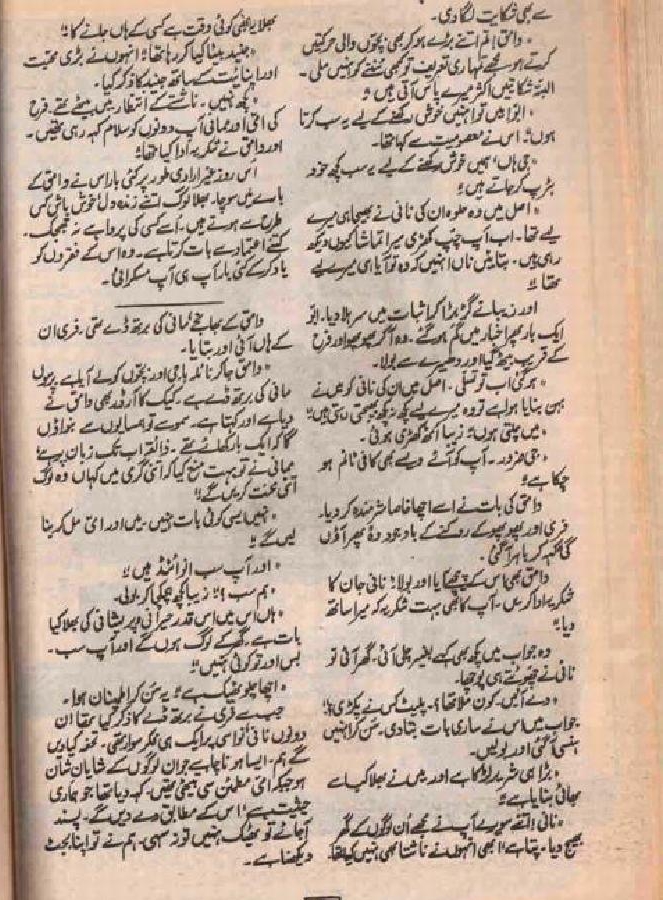 ے بھی شکایت لگا دی۔
"واثق! تم اتنے بڑے ہو کر بھی بچوں والی حرکتیں
کرتے ہو۔ مجھے تمہاری تعریف تو کبھی سننے کو نہیں ملی۔
البتہ شکایتیں اکثر میرے پاس آتی ہیں۔"
"ابو! میں تو انہیں خوش رکھنے کے لیے یہ سب کرتا
ہوں۔" اس نے معصومیت سے کہا تھا۔
"جی ہاں، ہمیں خوش رکھنے کے لیے یہ سب کچھ خود
ہڑپ کر جاتے ہیں۔"
"اصل میں وہ حلوہ ان کی نانی نے بھیجا ہی میرے
لیے تھا۔ اب آپ چپ کھڑی میرا تماشا کیوں دیکھ
رہی ہیں۔ بتائیں ناں انہیں کہ وہ تو آیا ہی میرے لیے
تھا۔"
اور زیبا نے گڑبڑا کر اثبات میں سر ہلا دیا۔ ابو
ایک بار پھر اخبار میں گم ہو گئے۔ وہ آکر پھوپھو اور فرح
کے قریب بیٹھ گیا اور دھیرے سے بولا۔
"ہو گئی اب تو تسلی۔ اصل میں ان کی نانی کو میں نے
بہن بنایا ہوا ہے تو وہ میرے لیے کچھ نہ کچھ بھیجتی رہتی ہیں۔"
"میں چلتی ہوں۔" زیبا اٹھ کھڑی ہوئی۔
"جی ضرور۔ آپ کو آئے ویسے بھی کافی ٹائم ہو
چکا ہے۔"
واثق کی بات نے اسے اچھا خاصا شرمندہ کر دیا۔
فری اور پھوپھو کے روکنے کے باوجود وہ پھر آؤں
گی کہہ کر باہر آ گئی۔
واثق بھی اس کے پیچھے آیا اور بولا۔ "نانی جان کا
شکریہ ادا کر دیں۔ آپ کا بھی بہت شکریہ کہ میرا ساتھ
دیا۔"
وہ جواب میں کچھ بھی کہے بغیر چلی آئی۔ گھر آئی تو
نانی نے چھوٹتے ہی پوچھا۔
"دے آئیں۔ کون ملا تھا؟۔ پلیٹ کس نے پکڑی؟"
جواب میں اس نے ساری بات بتا دی۔ سن کر انہیں
ہنسی آ گئی اور بولیں۔
"بڑا ہی شریر لڑکا ہے اور میں نے بھلا کب اسے
بھائی بنایا ہے۔"
"نانی! اتنے سویرے آپ نے مجھے ان لوگوں کے گھر
بھیج دیا۔ پتا ہے! ابھی انہوں نے ناشتا بھی نہیں کیا تھا
بھلا یہ بھی کوئی وقت ہے کسی کے ہاں جانے کا۔"
"جنید بیٹا کیا کر رہا تھا؟" انہوں نے بڑی محبت
اور اپنائیت کے ساتھ جنید کا ذکر کیا۔
"کچھ نہیں۔ ناشتے کے انتظار میں بیٹھے تھے۔ فرح
کی امی اور ممانی آپ دونوں کو سلام کہہ رہی تھیں۔
اور واثق نے شکریہ ادا کیا تھا۔"
اس روز غیر ارادی طور پر کئی بار اس نے واثق کے
بارے میں سوچا۔ بھلا لوگ اتنے زندہ دل، خوش باش کس
طرح سے ہوتے ہیں۔ اسے کسی کی پروا ہے نہ جھجک۔
کتنے اعتماد سے بات کرتا ہے۔ وہ اس کے فقروں کو
یاد کر کے کئی بار آپ ہی آپ مسکرائی۔
واثق کے بھانجے مانی کی برتھ ڈے تھی۔ فری ان
کے ہاں آئی اور بتایا۔
"واثق جا کر نائلہ باجی اور بچوں کو لے آیا ہے۔ پرسوں
مانی کی برتھ ڈے ہے۔ کیک کا آرڈر بھی واثق نے
دیا ہے اور کہتا ہے۔ سموسے تو ہمسایوں سے بنواؤں
گا کہ ایک بار کھائے تھے۔ ذائقہ اب تک زبان پہ ہے۔
ممانی نے تو بہت منع کیا کہ اتنی گرمی میں کہاں وہ لوگ
اتنی محنت کریں گے۔"
"نہیں ایسی کوئی بات نہیں۔ میں اور امی مل کر بنا
لیں گے۔"
"اور آپ سب انوائٹڈ ہیں۔"
"ہم سب!" زیبا کچھ ہچکچا کر بولی۔
"ہاں اس میں اس قدر حیرانی اور پریشانی کی بھلا کیا
بات ہے۔ گھر کے لوگ ہوں گے اور آپ سب۔
بس اور تو کوئی نہیں۔"
"اچھا چلو ٹھیک ہے۔" یہ سن کر اطمینان ہوا۔
جب سے فری نے برتھ ڈے کا ذکر کیا تھا ان
دونوں نانی نواسی پر ایک ہی فکر سوار تھی۔ تحفہ کیا دیں
گے ہم۔ ایسا ہونا چاہیے جو ان لوگوں کے شایان شان
ہو جبکہ امی مطمئن سی بیٹھی تھیں۔ کہہ دیا تھا جو ہماری
حیثیت ہے، اس کے مطابق دے دیں گے۔ پسند
آجائے تو ٹھیک نہیں تو نہ سہی۔ ہم نے تو اپنا بجٹ
دیکھنا ہے۔